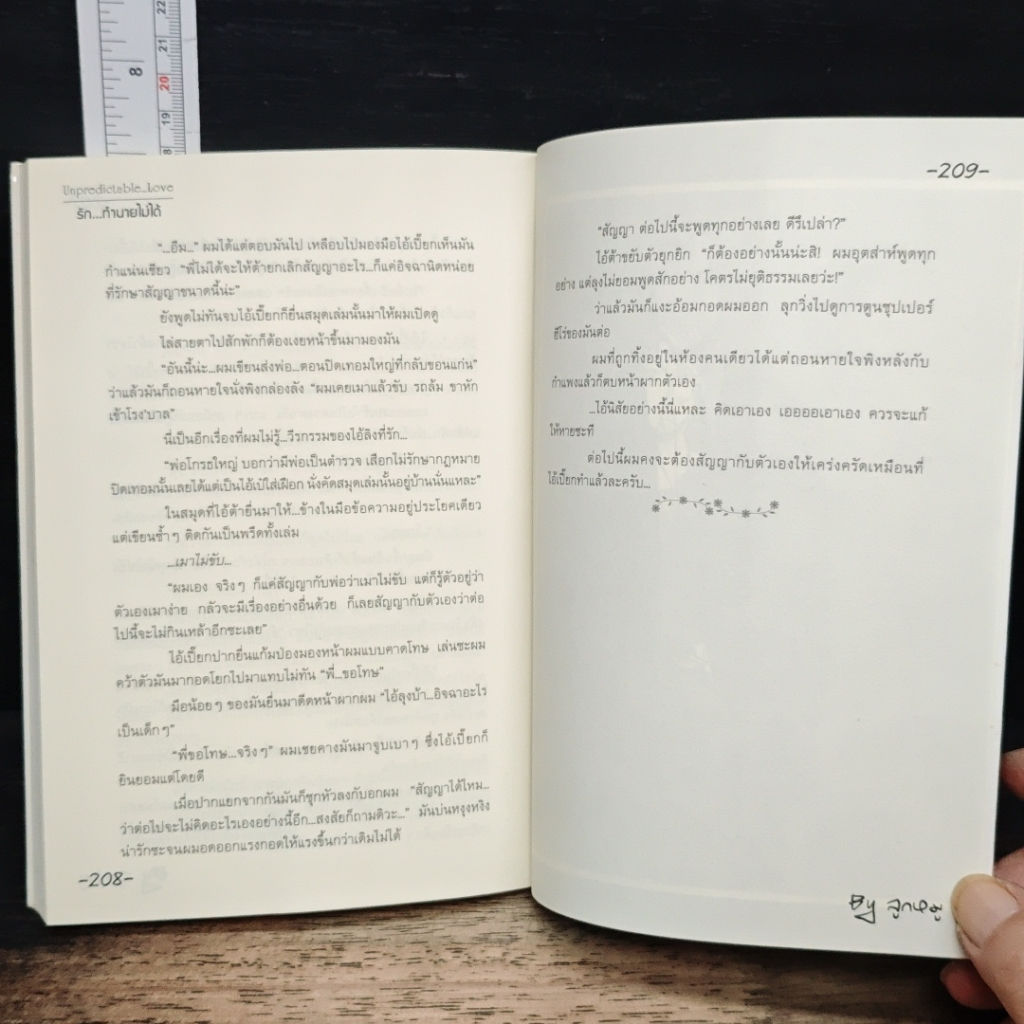 8
22
21
20
19
Unpredictable...Love
รัก...ทำนายไม่ได้
"...อืม..." ผมได้แต่ตอบมันไป เหลือบไปมองมือไอ้เปี๊ยกเห็นมัน
กำแน่นเชียว "พี่ไม่ได้จะให้ด้ายกเลิกสัญญาอะไร...ก็แค่อิจฉานิดหน่อย
ที่รักษาสัญญาขนาดนี้น่ะ"
ยังพูดไม่ทันจบไอ้เปี๊ยกก็ยื่นสมุดเล่มนั้นมาให้ผมเปิดดู
ไล่สายตาไปสักพักก็ต้องเงยหน้าขึ้นมามองมัน
"อันนี้น่ะ...ผมเขียนส่งพ่อ...ตอนปิดเทอมใหญ่ที่กลับขอนแก่น"
ว่าแล้วมันก็ถอนหายใจนั่งพิงกล่องลัง "ผมเคยเมาแล้วขับ รถล้ม ขาหัก
เข้าโรง'บาล"
นี่เป็นอีกเรื่องที่ผมไม่รู้...วีรกรรมของไอ้ลิงที่รัก...
"พ่อโกรธใหญ่ บอกว่ามีพ่อเป็นตำรวจ เสือกไม่รักษากฎหมาย
ปิดเทอมนั้นเลยได้แต่เป็นไอ้เป๋ใส่เฝือก นั่งคัดสมุดเล่มนั้นอยู่บ้านนั่นแหละ"
ในสมุดที่ไอ้ด้ายื่นมาให้...ข้างในมีข้อความอยู่ประโยคเดียว
แต่เขียนซ้ำๆ ติดกันเป็นพรืดทั้งเล่ม
...เมาไม่ขับ...
"ผมเอง จริงๆ ก็แค่สัญญากับพ่อว่าเมาไม่ขับ แต่ก็รู้ตัวอยู่ว่า
ตัวเองเมาง่าย กลัวจะมีเรื่องอย่างอื่นด้วย ก็เลยสัญญากับตัวเองว่าต่อ
ไปนี้จะไม่กินเหล้าอีกซะเลย"
ไอ้เปี๊ยกปากยื่นแก้มป่องมองหน้าผมแบบคาดโทษ เล่นซะผม
คว้าตัวมันมากอดโยกไปมาแทบไม่ทัน "พี่...ขอโทษ"
มือน้อยๆ ของมันยื่นมาดีดหน้าผากผม "ไอ้ลุงบ้า...อิจฉาอะไร
เป็นเด็กๆ"
"พี่ขอโทษ...จริงๆ" ผมเชยคางมันมาจูบเบาๆ ซึ่งไอ้เปี๊ยกก็
ยินยอมแต่โดยดี
เมื่อปากแยกจากกันมันก็ซุกหัวลงกับอกผม "สัญญาได้ไหม...
ว่าต่อไปจะไม่คิดอะไรเองอย่างนี้อีก...สงสัยก็ถามดิวะ..." มันบ่นหงุงหงิง
น่ารักซะจนผมอดออกแรงกอดให้แรงขึ้นกว่าเดิมไม่ได้
-208-
-209-
"สัญญา ต่อไปนี้จะพูดทุกอย่างเลย ดีรึเปล่า?"
ไอ้ด้าขยับตัวยุกยิก "ก็ต้องอย่างนั้นน่ะสิ! ผมอุตส่าห์พูดทุก
อย่าง แต่ลุงไม่ยอมพูดสักอย่าง โคตรไม่ยุติธรรมเลยว่ะ!"
ว่าแล้วมันก็แงะอ้อมกอดผมออก ลุกวิ่งไปดูการตูนซุปเปอร์
ฮีโร่ของมันต่อ
ผมที่ถูกทิ้งอยู่ในห้องคนเดียวได้แต่ถอนหายใจพิงหลังกับ
กำแพงแล้วก็ตบหน้าผากตัวเอง
...ไอ้นิสัยอย่างนี้นี่แหละ คิดเอาเอง เออออเอาเอง ควรจะแก้
ให้หายซะที
ต่อไปนี้ผมคงจะต้องสัญญากับตัวเองให้เคร่งครัดเหมือนที่
ไอ้เปี๊ยกทำแล้วละครับ...
By ลูกหมู